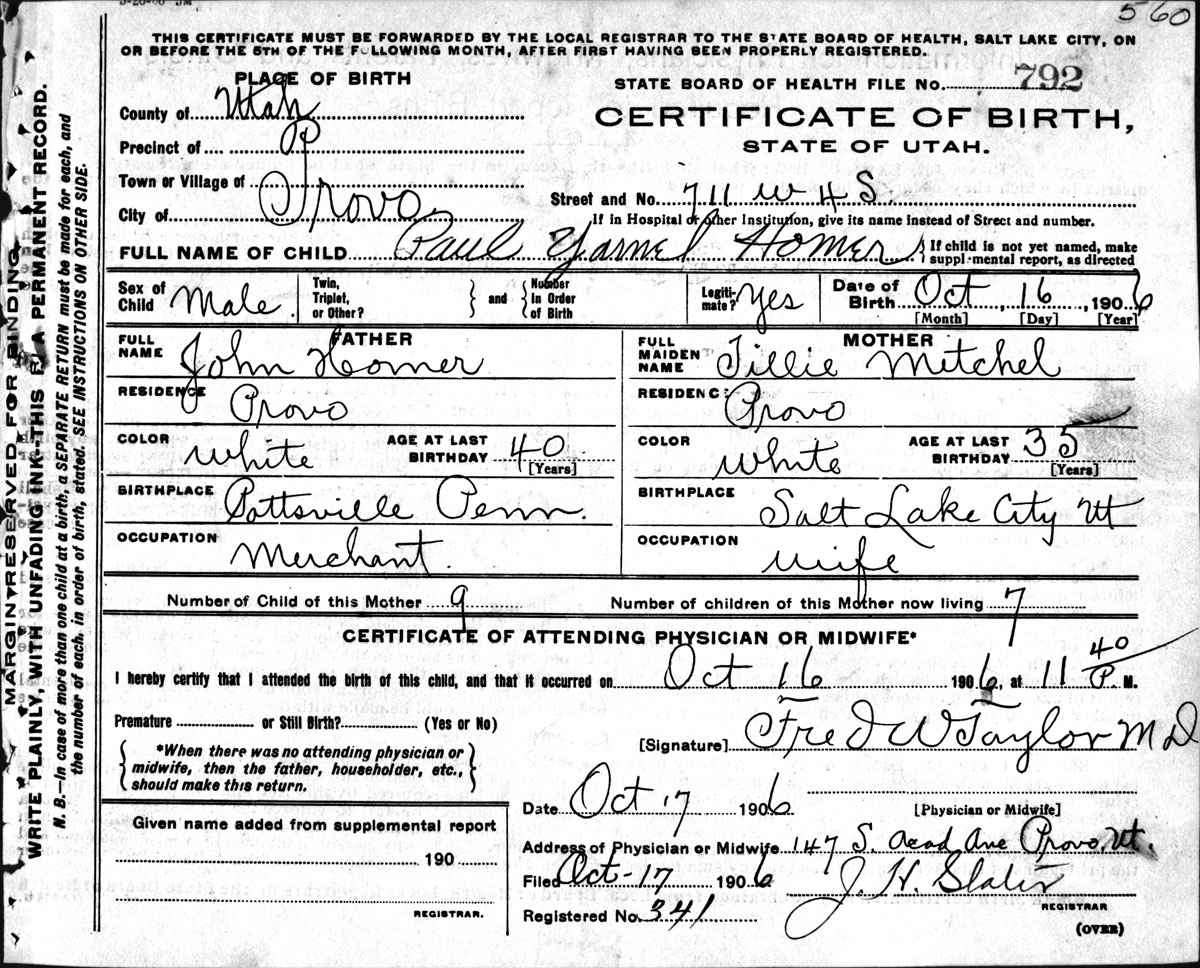 560
THIS CERTIFICATE MUST BE FORWARDED BY THE LOCAL REGISTRAR TO THE STATE BOARD OF HEALTH, SALT LAKE CITY, ON
OR BEFORE THE 5TH OF THE FOLLOWING MONTH, AFTER FIRST HAVING BEEN PROPERLY REGISTERED.
PLACE OF BIRTH
STATE BOARD OF HEALTH FILE No. 792
County of Utah
CERTIFICATE OF BIRTH,
Precinct of P
STATE OF UTAH.
Town or Village of
City of Provo
Street and No. 711 W 4 S.
If in Hospital or other Institution, give its name instead of Street and number.
FULL NAME OF CHILD Paul Yarnel Homer } If child is not yet named, make supplemental report, as directed
Sex of Child Male. Twin, Triplet, or Other? } and { Number in Order of Birth Legitimate? Yes Date of Birth Oct, 16, 1906
[Month] [Day] [Year]
FATHER
FULL NAME John Homer
RESIDENCE Provo
COLOR White AGE AT LAST BIRTHDAY 40 [Years]
BIRTHPLACE Pottsville Penn.
OCCUPATION Merchant.
MOTHER
FULL MAIDEN NAME Tillie Mitchel
RESIDENCE Provo
COLOR White AGE AT LAST BIRTHDAY 35 [Years]
BIRTHPLACE Salt Lake City Ut
OCCUPATION Wife
Number of Child of this Mother 9 Number of children of this Mother now living 7
CERTIFICATE OF ATTENDING PHYSICIAN OR MIDWIFE*
I hereby certify that I attended the birth of this child, and that it occurred on Oct 16 1906, at 11 40 P. M.
Premature or Still Birth? (Yes or No)
[Signature] Fred W Taylor M D
{ *When there was no attending physician or
midwife, then the father, householder, etc.,
should make this return. }
Date Oct 17 1906 [Physician or Midwife]
Given name added from supplemental report
190
REGISTRAR.
Address of Physician or Midwife 147 S. Acad Ave Provo, Ut.
Filed Oct-17 1906 J. H. Slater
REGISTRAR
Registered No. 341
(OVER)
MARGIN RESERVED FOR BINDING
WRITE PLAINLY, WITH UNFADING INK--THIS IS A PERMANENT RECORD.
N. B.—In case of more than one child at a birth, a SEPARATE RETURN must be made for each, and
the number of each, in order of birth, stated. SEE INSTRUCTIONS ON OTHER SIDE.